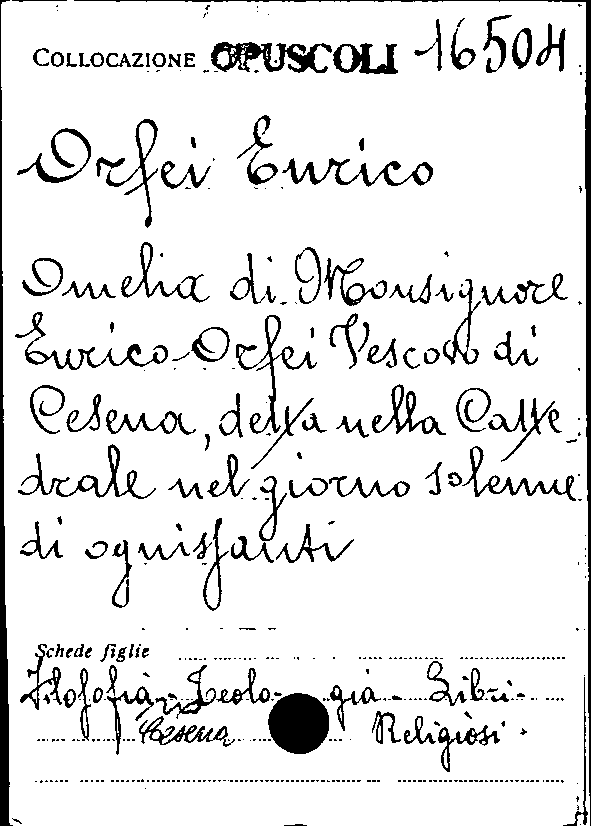 COLLOCAZIONE OPUSCOLI 16504
Orfei Enrico
Omelia di Monsignore
Enrico Orfei Vescovo di
Cesena, detta nella Catte-
drale nel giorno solenne
di ognissanti
Schede figlie
Filosofia - Teolo- gia - Libri-
Cesena Religiosi.